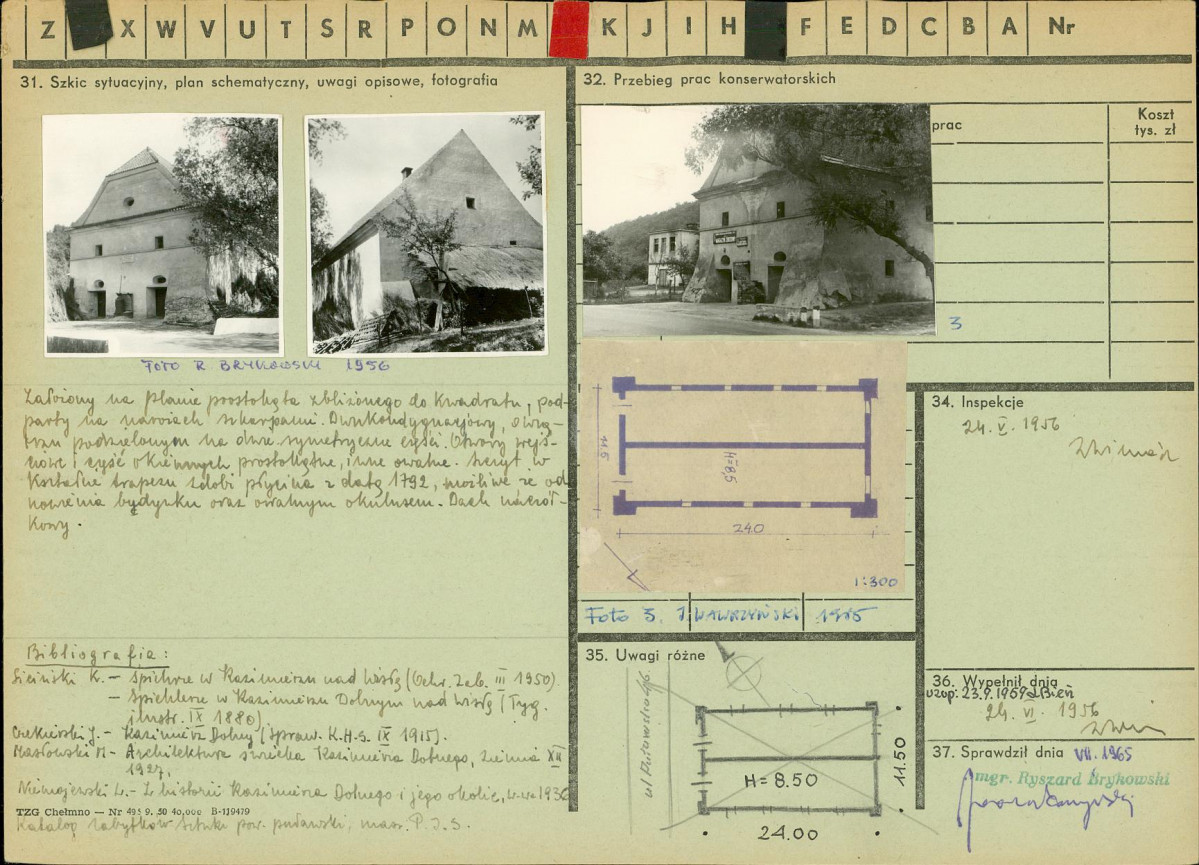 Z X W V U T S R P O N M K J I H F E D C B A Nr
31. Szkic sytuacyjny, plan schematyczny, uwagi opisowe, fotografia
Foto R BRYKOWSKI 1956
Założony na planie prostokąta zbliżonego do kwadratu, pod-
party na narożach szkarpami. Dwukondygnacjowy, o wnę-
trzu podzielonym na dwie symetryczne części. Otwory wejś-
ciowe i część okiennych prostokątne, inne owalne. Szczyt w
kształcie trapezu zdobi płycina z datą 1792, możliwe że od-
nowienia budynku oraz owalnym okulusem. Dach naczół-
kowy.
Bibliografia:
Siciński K. – Spichrze w Kazimierzu nad Wisłą (Ochr. Zab. III 1950)
– Spichlerze w Kazimierzu Dolnym nad Wisłą (Tyg.
ilustr. IX 1880)
J. – Kazimierz Dolny (Spraw. K.H.S. IX 1915).
Masłowski M – Architektura świecka Kazimierza Dolnego, Ziemia XII
1927,
Niemojewski L. – Z historii Kazimierza Dolnego i jego okolic, W-wa 1936
TZG Chełmno — Nr 495 9. 50 40,000 B-119479
Katalog zabytków sztuki pow. puławski, masz. P.I.S.
32. Przebieg prac konserwatorskich
prac
Koszt
tys. zł
3
11.5
H=8,5
24.0
1:300
Foto 3. J. WAWRZYŃSKI 1965
34. Inspekcje
24. V. 1956
35. Uwagi różne
ul Puławska 46
H = 8.50
11.50
24.00
36. Wypełnił dnia
uzup. 23.9.1969 Bień
24. VI. 1956
37. Sprawdził dnia VII. 1965
mgr. Ryszard Brykowski